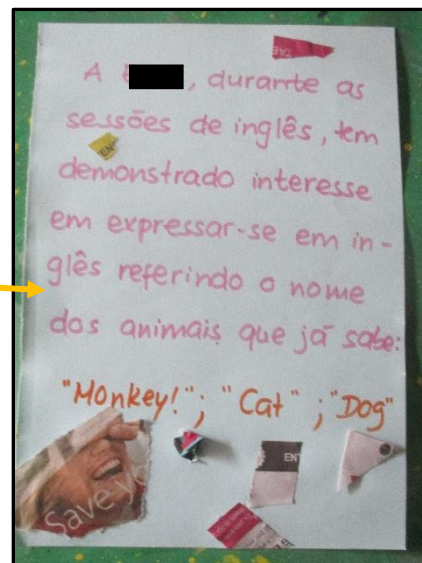 A , durante as
sessões de inglês, tem
demonstrado interesse
em expressar-se em in-
glês referindo o nome
dos animais que já sabe:
"Monkey!"; "Cat"; "Dog"
Save yo
EN